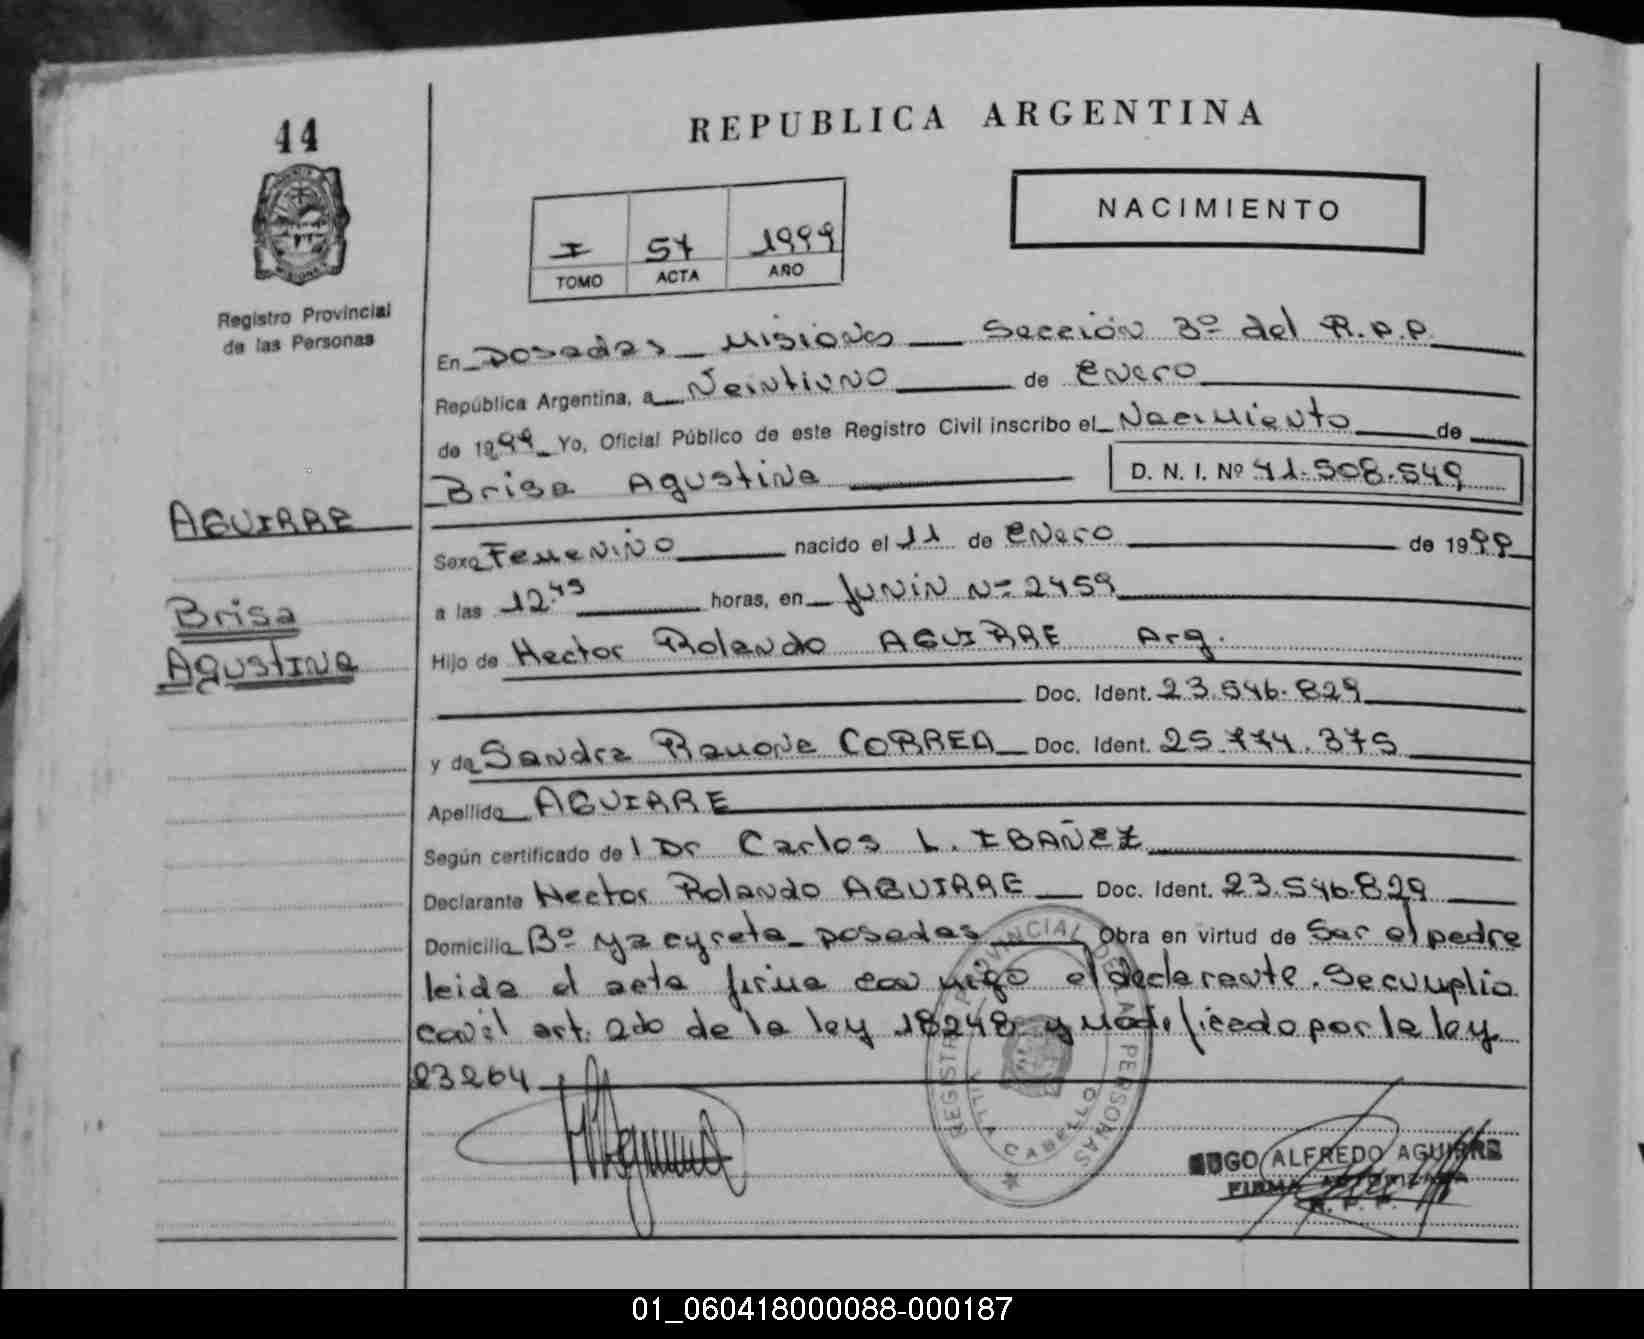 44
REPUBLICA ARGENTINA
NACIMIENTO
I 57 1999
TOMO ACTA AÑO
Registro Provincial
de las Personas
En Posadas Misiones Sección 3º del R.P.P.
República Argentina, a Veintiuno de Enero
de 1999 Yo, Oficial Público de este Registro Civil inscribo el Nacimiento de
Brisa Agustina D. N. I. Nº 41.508.549
AGUIRRE
Brisa
Agustina
Sexo Femenino nacido el 11 de Enero de 1999
a las 12.45 horas, en Junín Nº 2459
Hijo de Hector Rolando AGUIRRE Arg.
Doc. Ident. 23.546.829
y de Sandra Ramona CORREA Doc. Ident. 25.774.375
Apellido AGUIRRE
Según certificado de l Dr Carlos L. IBAÑEZ
Declarante Hector Rolando AGUIRRE Doc. Ident. 23.546.829
Domicilio Bº Yacyreta Posadas Obra en virtud de Ser el padre
leida el acta firma conmigo el declarante. Se cumplio
con el art. 2do de la ley 18248 y modificado por la ley
23264
REGISTRO PROVINCIAL DE LAS PERSONAS
VILLA CABELLO
HUGO ALFREDO AGUIRRE
FIRMA AUTORIZADA
R. P. P.
01_060418000088-000187